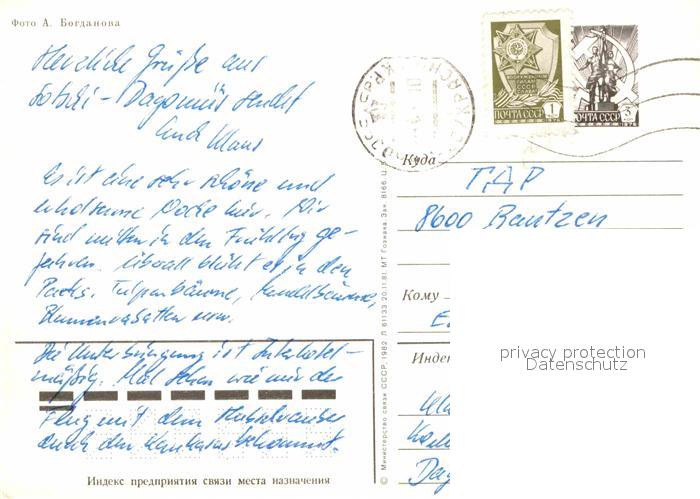 Фото А. Богданова
Herzliche Grüße aus
Sotschi – Dagomys sendet
Euch Klaus
Es ist eine sehr schöne und
erholsame Woche hier. Wir
sind mitten in den Frühling ge-
fahren. Überall blüht es in den
Parks. Tulpenbäume, Mandelbäume,
Blumenrabatten usw.
Die Unterbringung ist Interhotel-
mäßig. Mal sehen wie mir der
Flug mit dem Hubschrauber
durch den Kaukasus bekommt.
Индекс предприятия связи места назначения
© Министерство связи СССР. 1982 Л 61133 20.11.81. МТ Гознака. Зак. 8166. Ц.
ПОЧТА СССР 1
1976
ПОЧТА СССР 3
1976
Куда
ГДР
8600 Bautzen
Кому
Индек
privacy protection
Datenschutz